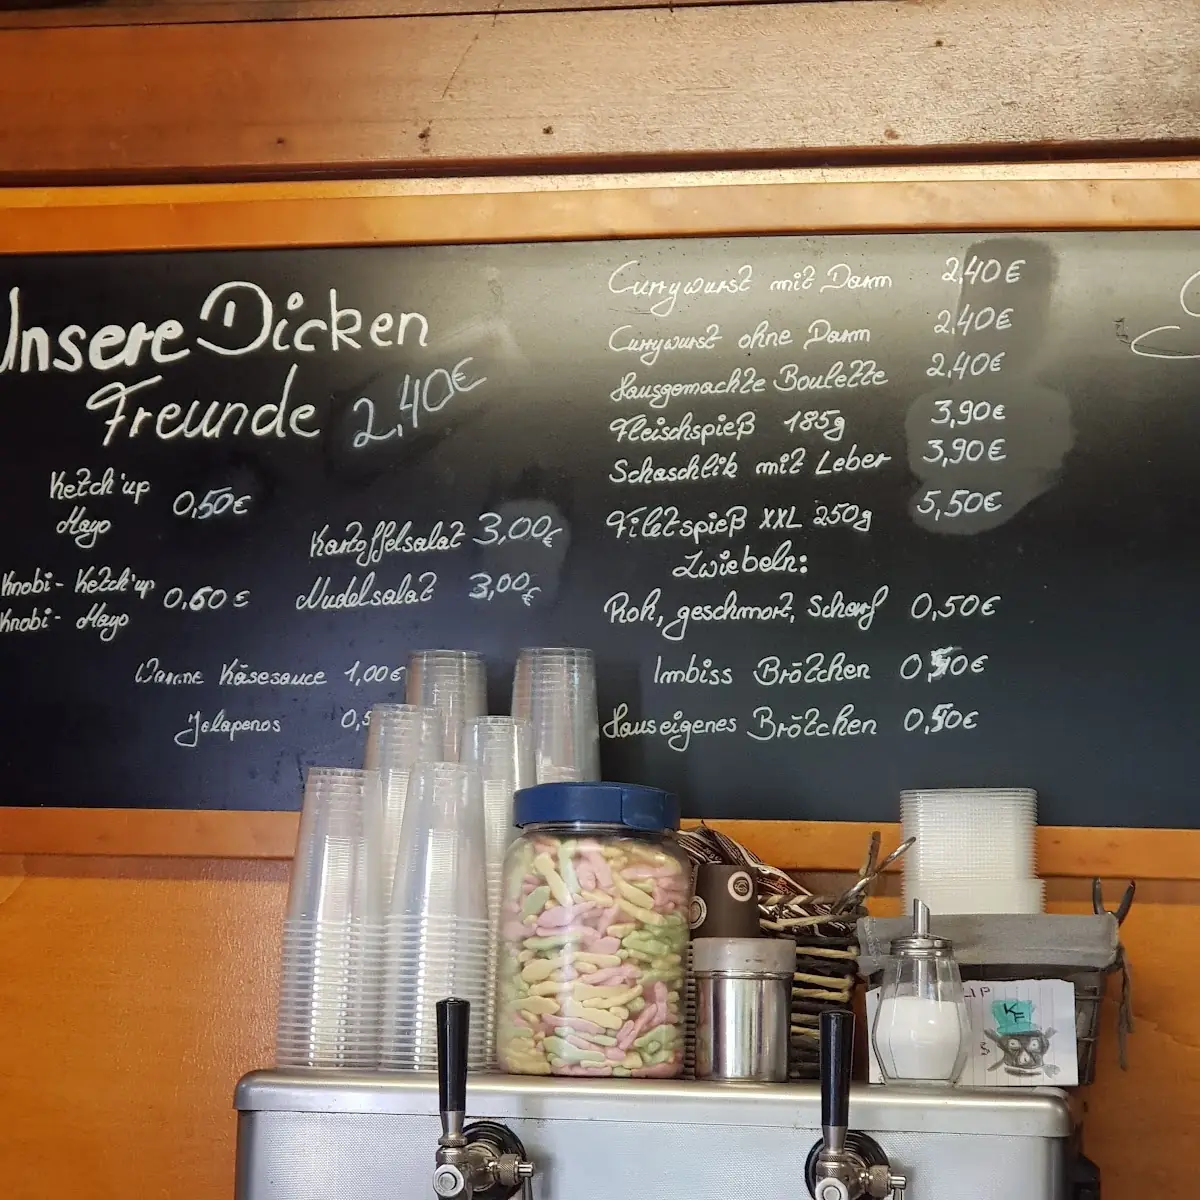 Unsere Dicken
Freunde 2,40€
Ketch'up
Mayo 0,50€
Knobi- Ketch'up
Knobi- Mayo 0,60€
Kartoffelsalat 3,00€
Nudelsalat 3,00€
Warme Käsesauce 1,00€
Jalapenos 0,5
Currywurst mit Darm 2,40€
Currywurst ohne Darm 2,40€
Hausgemachte Boulette 2,40€
Fleischspieß 185g 3,90€
Schaschlik mit Leber 3,90€
Filetspieß XXL 250g 5,50€
Zwiebeln:
Roh, geschmort, Scharf 0,50€
Imbiss Brötchen 0,50€
Hauseigenes Brötchen 0,50€
KF